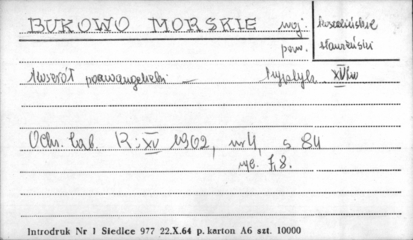 BUKOWO MORSKIE woj. koszalińskie
pow. sławieński
kościół poewangelicki — tryptyk XVI w
Ochr. Zab. R: XV 1962, nr 4, s 84
ryc. 7,8.
Introdruk Nr 1 Siedlce 977 22.X.64 p. karton A6 szt. 10000